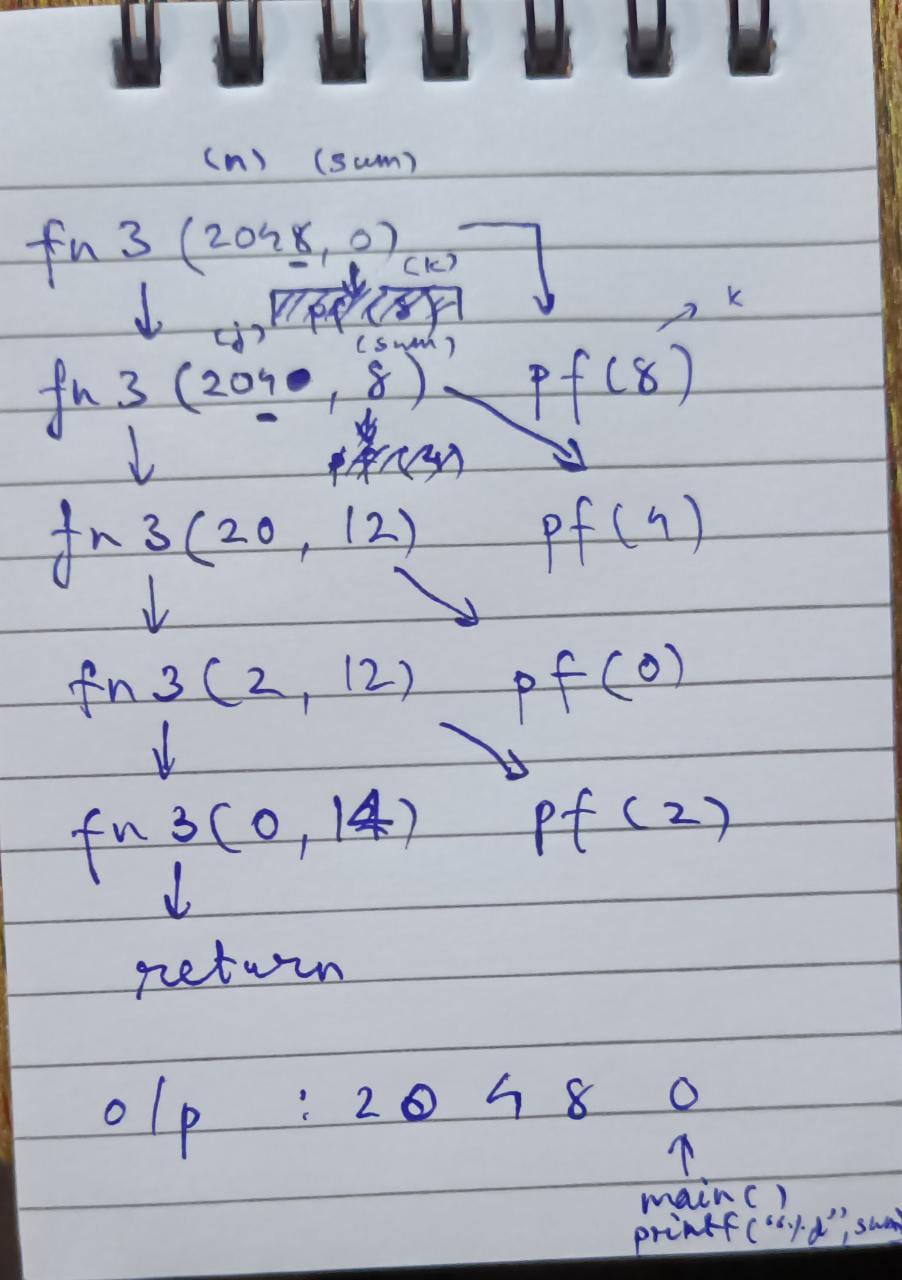 (n) (sum)
fn 3 (2048, 0)
(k)
k
(j) (sum)
fn 3 (2040, 8) pf(8)
fn 3 (20, 12) pf(4)
fn 3 (2, 12) pf(0)
fn 3 (0, 14) pf(2)
return
o/p : 2 0 4 8 0
main()
printf("%d", sum)